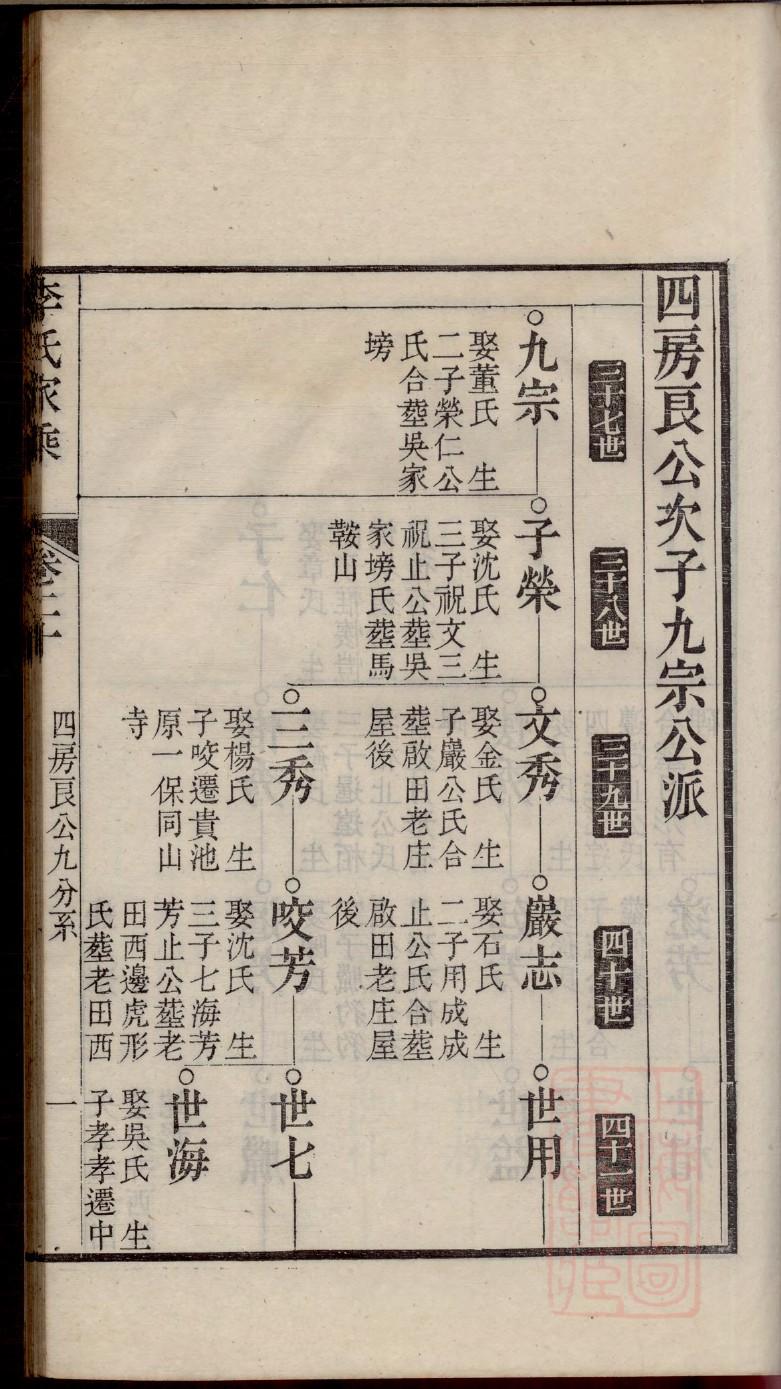 四房良公次子九宗公派
三十七世
三十八世
三十九世
四十世
四十一世
九宗
娶董氏　生
二子榮仁公
氏合塟吳家
塝
子榮
娶沈氏　生
三子祝文三
祝止公塟吳
家塝氏塟馬
鞍山
文秀
娶金氏　生
子巖公氏合
塟啟田老庄
屋後
巖志
娶石氏　生
二子用成成
止公氏合塟
啟田老庄屋
後
世用
三秀
娶楊氏　生
子咬遷貴池
原一保同山
寺
咬芳
娶沈氏　生
三子七海芳
芳止公塟老
田西邊虎形
氏塟老田西
世七
世海
娶吳氏　生
子孝孝遷中
李氏家乘
卷二十
四房良公九分系
一